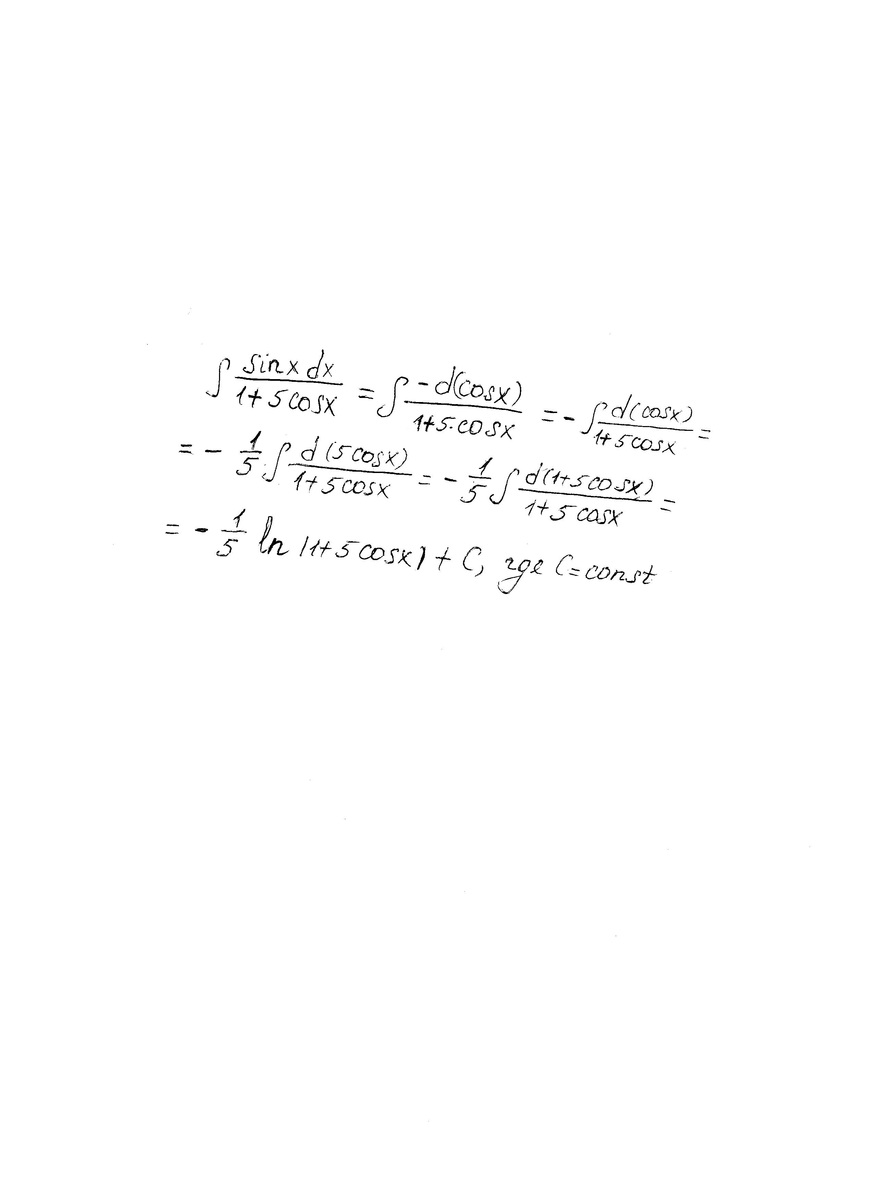 ∫ sinx dx / 1+5cosx = ∫ -d(cosx) / 1+5·cosx = - ∫ d(cosx) / 1+5cosx =
= - 1/5 ∫ d(5cosx) / 1+5cosx = - 1/5 ∫ d(1+5cosx) / 1+5cosx =
= - 1/5 ln |1+5cosx| + C, где C=const